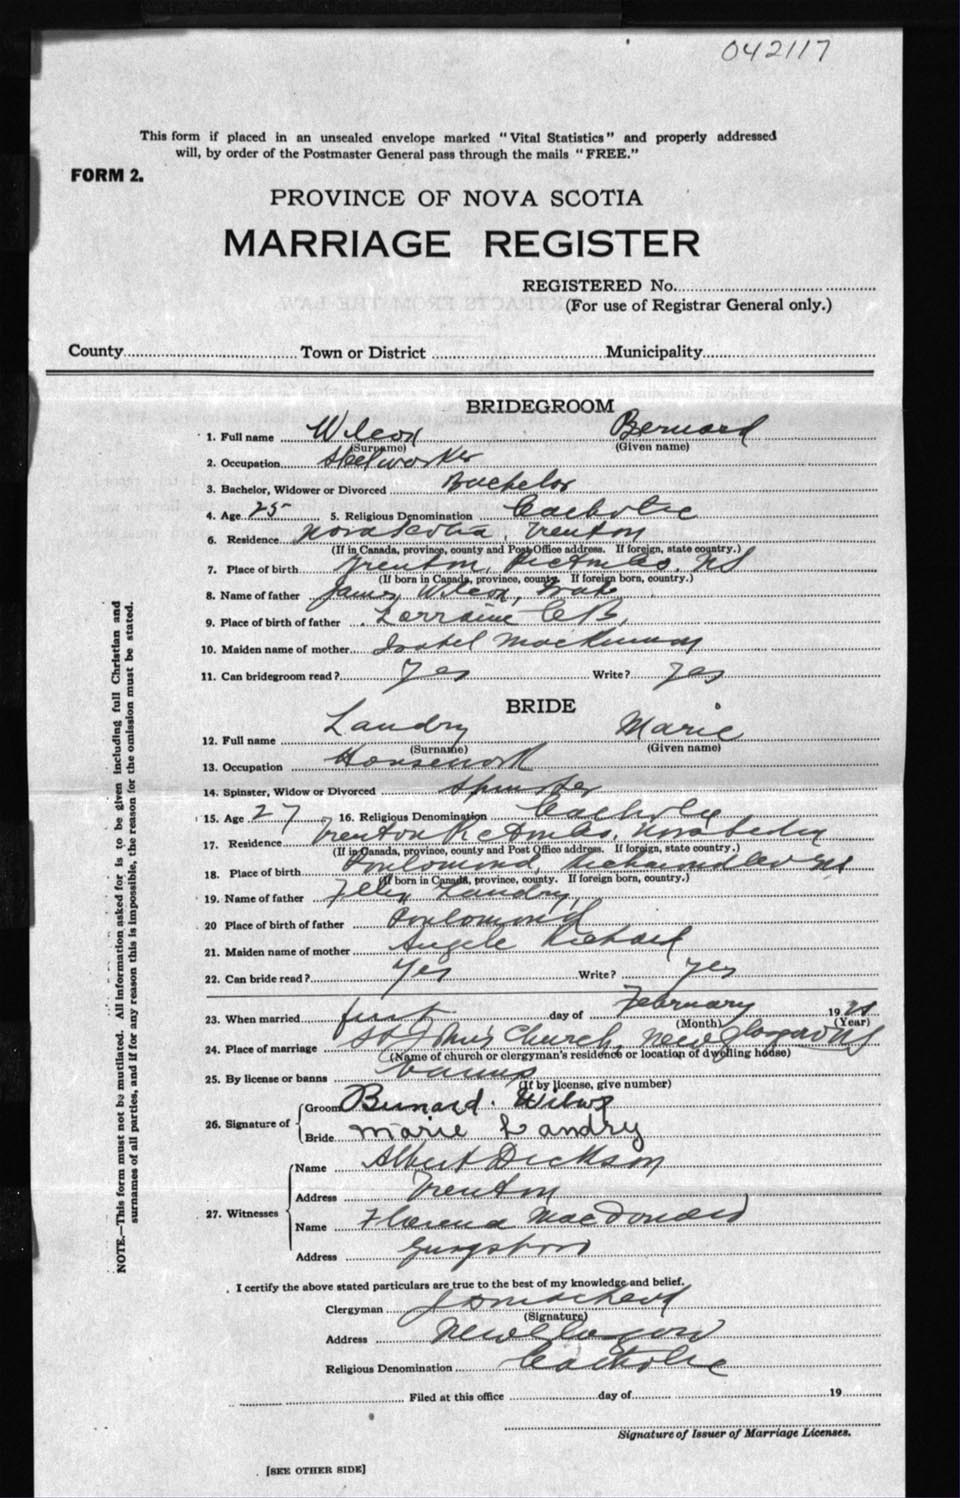 042117
This form if placed in an unsealed envelope marked "Vital Statistics" and properly addressed
will, by order of the Postmaster General pass through the mails "FREE."
FORM 2.
PROVINCE OF NOVA SCOTIA
MARRIAGE REGISTER
REGISTERED No.
(For use of Registrar General only.)
County Town or District Municipality
BRIDEGROOM
1. Full name Wilcox Bernard
(Surname) (Given name)
2. Occupation Steelworker
3. Bachelor, Widower or Divorced Bachelor
4. Age 25 5. Religious Denomination Catholic
6. Residence Nova Scotia, Trenton
(If in Canada, province, county and Post Office address. If foreign, state country.)
7. Place of birth Trenton, Pictou Co. NS
(If born in Canada, province, county. If foreign born, country.)
8. Name of father James Wilcox,
9. Place of birth of father Lorraine CB,
10. Maiden name of mother Isabel MacKinnon
11. Can bridegroom read? Yes Write? Yes
BRIDE
12. Full name Landry Marie
(Surname) (Given name)
13. Occupation Housework
14. Spinster, Widow or Divorced Spinster
15. Age 27 16. Religious Denomination Catholic
17. Residence Trenton Pictou Co, Nova Scotia
(If in Canada, province, county and Post Office address. If foreign, state country.)
18. Place of birth Poulomond, Richmond Co NS
(If born in Canada, province, county. If foreign born, country.)
19. Name of father Felix Landry,
20 Place of birth of father Poulomond
21. Maiden name of mother Angele Richard
22. Can bride read? Yes Write? Yes
23. When married first day of February 19
(Month) (Year)
24. Place of marriage St John's Church, New Glasgow NS
(Name of church or clergyman's residence or location of dwelling house)
25. By license or banns banns
(If by license, give number)
26. Signature of Groom Bernard Wilcox
Bride Marie Landry
27. Witnesses Name Albert Dickson
Address Trenton
Name Florence MacDonald
Address
I certify the above stated particulars are true to the best of my knowledge and belief.
Clergyman
(Signature)
Address New Glasgow
Religious Denomination Catholic
Filed at this office day of 19
Signature of Issuer of Marriage Licenses.
[SEE OTHER SIDE]
NOTE.—This form must not be mutilated. All information asked for is to be given including full Christian and
surnames of all parties, and if for any reason this is impossible, the reason for the omission must be stated.